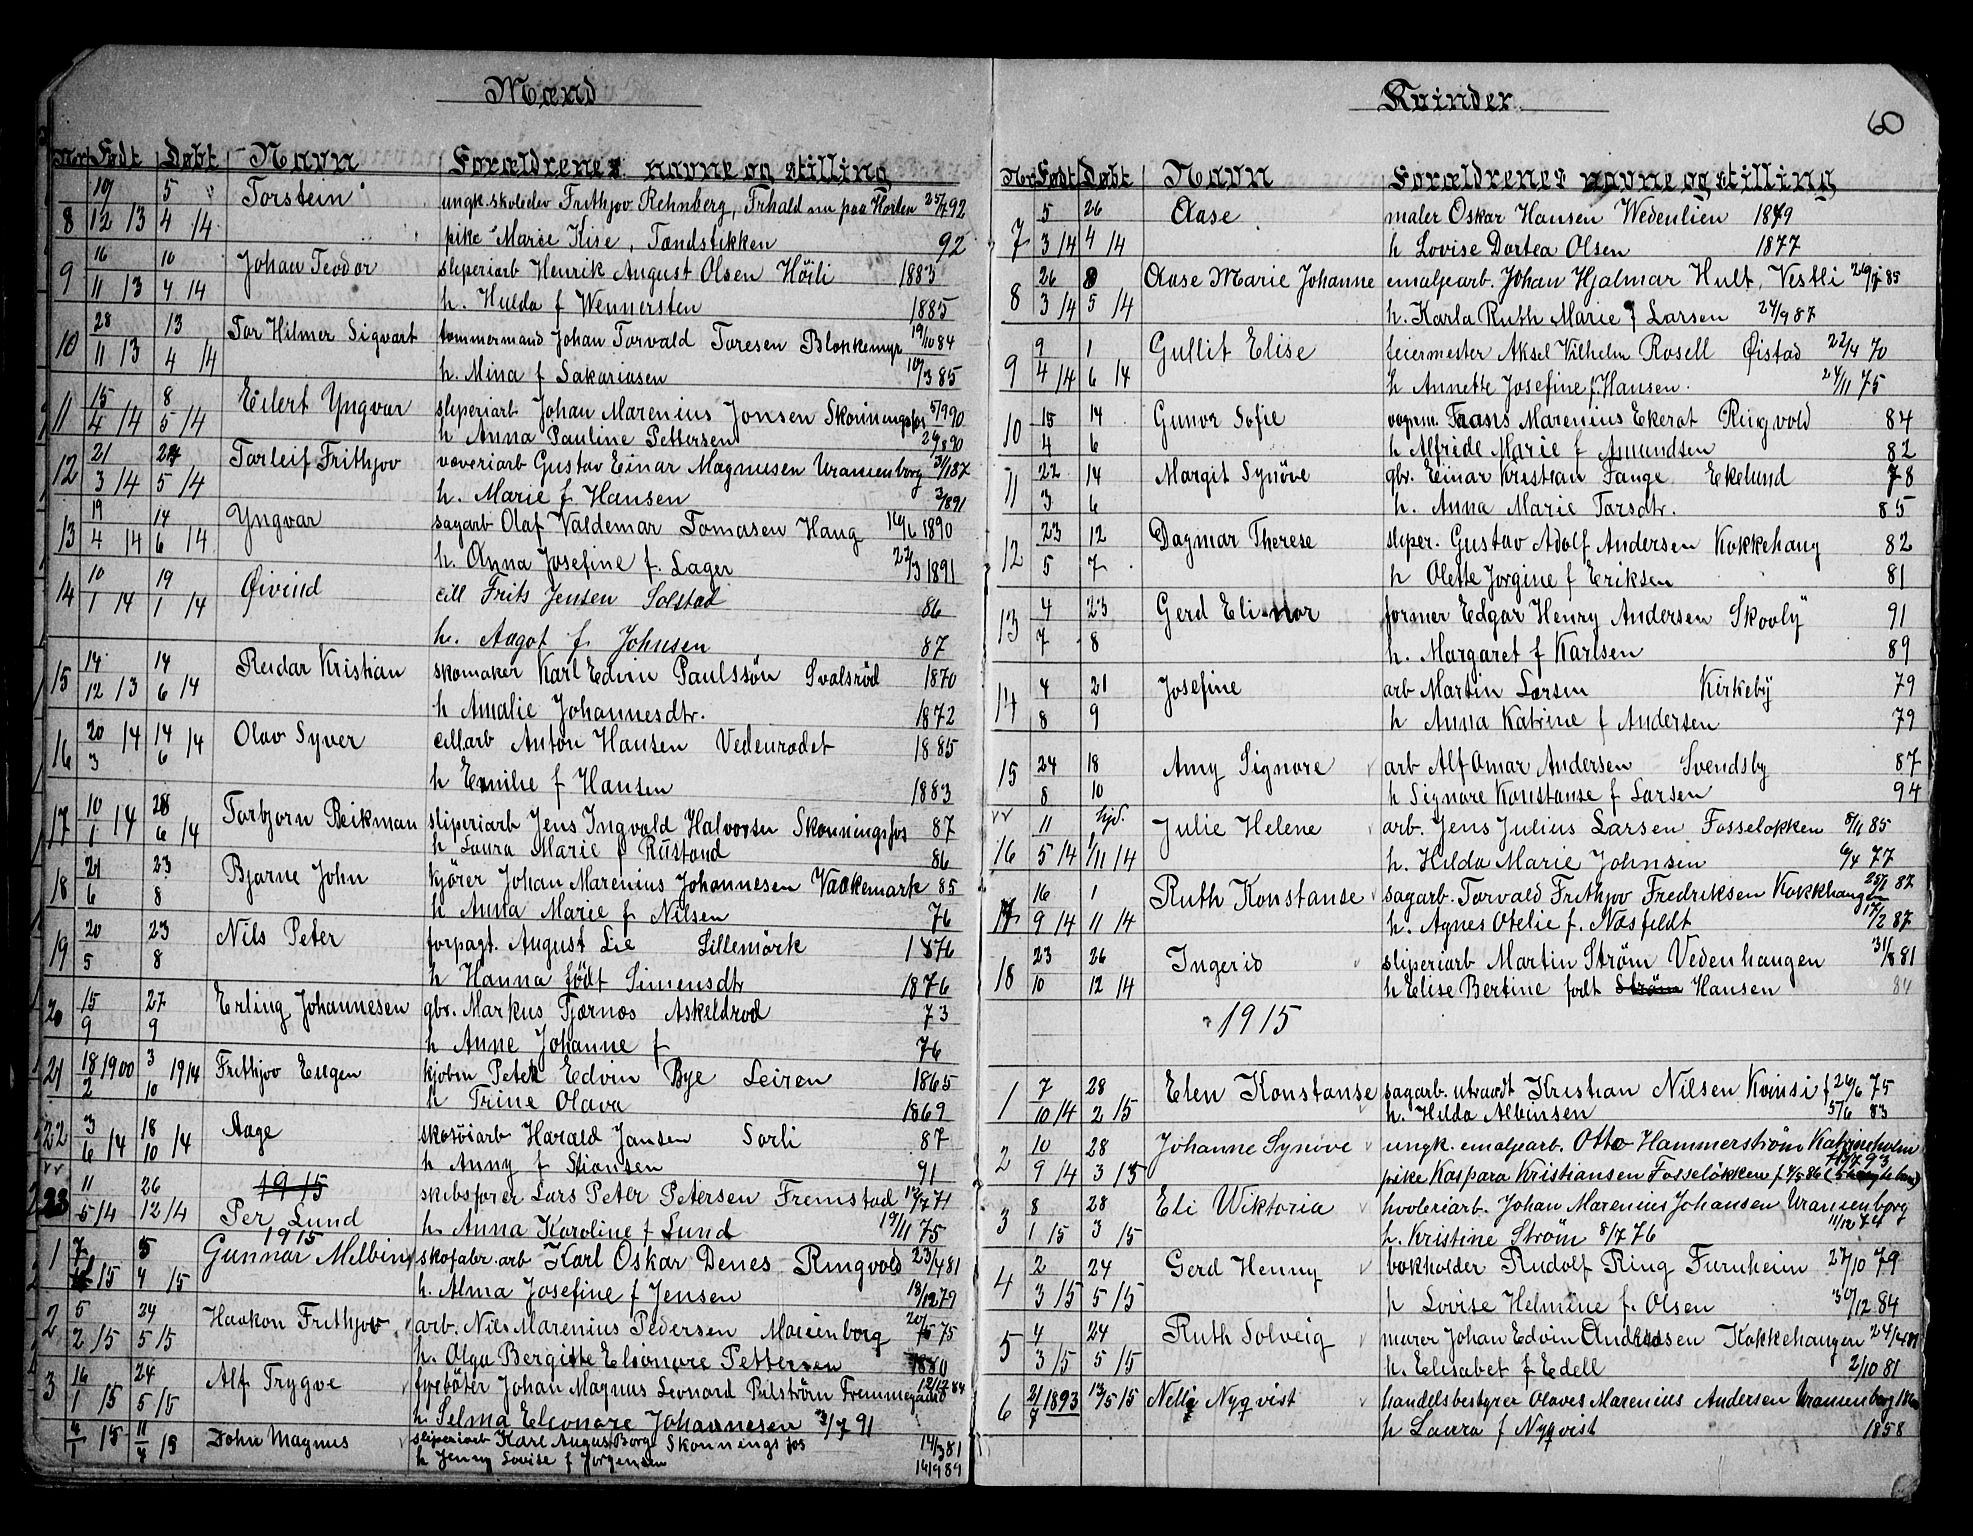 Mænd
Nr. Født Døbt Navn Forældrenes navne og stilling
8 10/12 13 5/4 14 Torstein ungk. skoleelev Frithjov Rehnberg, Frhald nu paa Horten 25/7 92
pike Marie Kise, Tændstikken 92
9 16/11 13 10/4 14 Johan Teodor sliperiarb Henrik August Olsen Höili 1883
h. Hulda f Wennersten 1885
10 28/11 13 13/4 14 Tor Hilmer Sigvart tømmermand Johan Torvald Toresen Blokkemyr 19/10 84
h. Mina f Sakariasen 10/3 85
11 15/4 14 8/5 14 Eilert Yngvar sliperiarb Johan Marenius Jonsen Skonningsfos 5/9 90
h Anna Pauline Pettersen 90
12 21/3 14 24/5 14 Torleif Frithjov væveriarb Gustav Einar Magnusen Uranienborg 3/1 87
h. Marie f. Hansen 3/8 91
13 19/4 14 14/6 14 Yngvar sagarb Olaf Valdemar Tomasen Haug 16/6 1890
h. Anna Josefine f. Lager 22/3 1891
14 10/1 14 19/1 14 Øivind cill Frits Jensen Solstad 86
h. Aagot f. Johnsen 87
15 14/12 13 14/6 14 Reidar Kristian skomaker Karl Edvin Paulssön Svalsröd 1870
h Amalie Johannesdtr. 1872
16 20/3 14 14/6 14 Olav Syver cillarb Anton Hansen Vedenrødet 1885
h Emilie f Hansen 1883
17 10/1 14 28/6 14 Torbjørn Reikman sliperiarb Jens Ingvald Halvorsen Skonningsfos 87
h Laura Marie f Rustand 86
18 21/6 23/8 Bjarne John kjører Johan Marenius Johannesen Vaakemark 85
h Anna Marie f Nilsen 76
19 20/5 23/8 Nils Peter forpagt. August Lie Lillemörk 1876
h Hanna födt Simensdtr 1876
20 15/9 27/9 Erling Johannesen gbr. Markus Tjærnæs Askeldrød 73
h Anne Johanne f 76
21 18/2 1900 3/10 1914 Frithjov Eugen kjøbm Peter Edvin Bye Leiren 1865
h Trine Olava 1869
22 3/6 14 18/10 14 Aage skotöiarb Harald Jansen Sorli 87
h Anny f Stiansen 91
1915
23 11/5 14 26/12 14 Per Lund skibsfører Lars Peter Petersen Fremstad 12/7 71
h. Anna Karoline f Lund 19/11 75
1915
1 7/ 15 5/4 15 Gunnar Melbin skofabr. arb Karl Oskar Denes Ringvold 23/4 81
h. Alma Josefine f Jensen 18/12 79
2 5/2 15 24/5 15 Haakon Frithjov arb. Nils Marenius Pedersen Marienborg 20/5 75
h. Olga Bergitte Elionore Pettersen 1880
3 16/1 15 24/5 15 Alf Trygve fyrböter Johan Magnus Leonard Pilström Fremmegaard 12/12 84
h. Selma Eleonore Johannesen 3/7 91
4/1 15 11/4 15 John Magnus sliperiarb Karl August Borge Skonningsfos 14/3 81
h Jenny Lovise f Jørgensen 14/9 89
Kvinder
60
Nr. Født Døbt Navn Forældrenes navne og stilling
7 5/3 14 26/4 14 Aase maler Oskar Hansen Wedenlien 1879
h Lovise Dortea Olsen 1877
8 26/3 14 /5 14 Aase Marie Johanne emaljearb. Johan Hjalmar Hult, Vestli 85
h. Karla Ruth Marie f Larsen 24/9 87
9 9/4 14 1/6 14 Gullit Elise feiermester Aksel Vilhelm Rosell Øistad 22/4 70
h Annette Josefine f. Hansen. 24/11 75
10 15/4 14/6 Gunvor Sofie vognm. Frans Marenius Ekerot Ringvold 84
h Alfride Marie f Amundsen 82
11 22/3 14/6 Margit Synöve gbr. Einar Kristian Tange Ekelund 78
h. Anna Marie Torsdtr. 85
12 23/5 12/7 Dagmar Therese sliper. Gustav Adolf Andersen Kokkehaug 82
h Olette Jorgine f Eriksen 81
13 4/7 23/8 Gerd Elinor former Edgar Henry Andersen Skovly 91
h. Margaret f Karlsen 89
14 4/8 21/9 Josefine arb Martin Larsen Kirkeby 79
h Anna Katrine f Andersen 79
15 24/8 18/10 Amy Signore arb Alf Omar Andersen Svendsby 87
h Signore Konstanse f Larsen 94
16 11/5 14 hjd. 1/11 14 Julie Helene arb. Jens Julius Larsen Fosseløkken 8/11 85
h. Hilda Marie Johnsen 6/4 77
17 16/9 14 1/11 14 Ruth Konstanse sagarb. Torvald Frithjov Fredriksen Kokkhaugen 25/1 87
h. Agnes Otelie f. Næsfeldt 17/2 87
18 23/10 26/12 14 Ingerid sliperiarb Martin Strøm Vedenhaugen 31/8 81
h Elise Bertine født Strøm Hansen 84
1915
1 7/10 14 28/2 15 Elen Konstanse sagarb. utvandt Kristian Nilsen Kvinsi f 26/6 75
h. Hilda Albinsen 5/6 83
2 10/9 14 28/3 15 Johanne Synöve ungk. emaljearb. Otto Hammerström Katrineholm 93
pike Kaspara Kristiansen Fosselökken f. 4/5 86
3 8/1 15 28/3 15 Eli Wiktoria hvoleriarb. Johan Marenius Johansen Uranienborg 11/12 74
h. Kristine Strøm 8/7 76
4 2/3 15 24/5 15 Gerd Henny bokholder Rudolf Ring Furuheim 27/10 79
h Lovise Helmine f. Olsen 30/12 84
5 4/3 15 24/5 15 Ruth Solveig murer Johan Edvin Andersen Kokkehaugen 24/4
h. Elisabet f Edell 2/10 81
6 21/7 1893 13/5 15 Nelly Nyqvist handelsbestyrer Olaves Marenius Andersen Uranienborg
h Laura f Nyqvist 1858